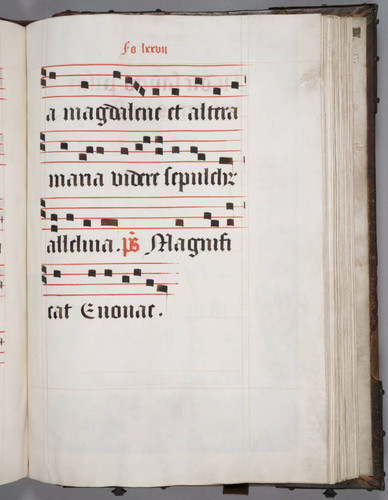 Fo lxxvii
a magdalene et altera
maria videre sepulchꝝ
alleluia. ps Magnifi
cat Euouae.